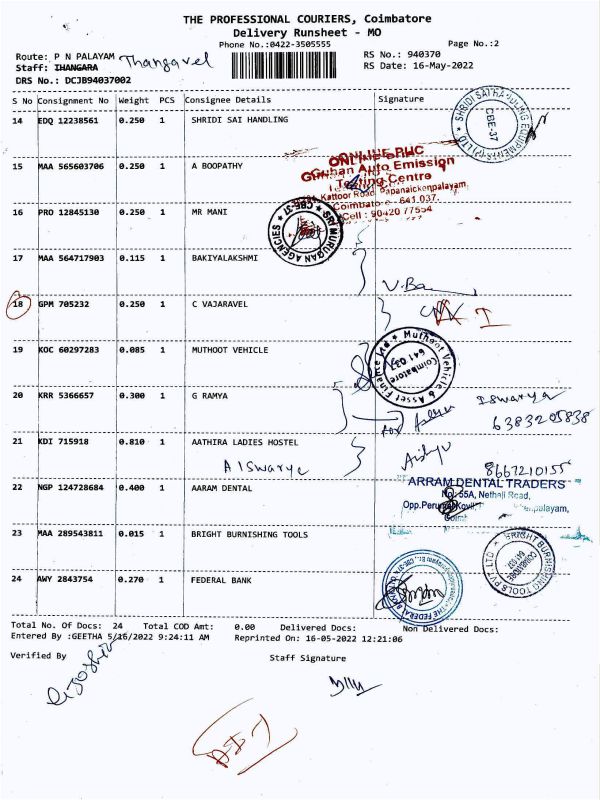 THE PROFESSIONAL COURIERS, Coimbatore
Delivery Runsheet - MO
Phone No.:0422-3505555 Page No.:2
Route: P N PALAYAM Thangavel RS No.: 940370
Staff: THANGARA RS Date: 16-May-2022
DRS No.: DCJB94037002
S No Consignment No Weight PCS Consignee Details Signature
14 EDQ 12238561 0.250 1 SHRIDI SAI HANDLING
SHRIDI SAI HANDLING EQUIPMENTS (P) LTD
CBE-37
15 MAA 565603706 0.250 1 A BOOPATHY
ONLINE PUC
Guhan Auto Emission
Testing Centre
Kattoor Road, Papanaickenpalayam,
Coimbatore - 641 037.
Cell : 90420 77554
16 PRO 12845130 0.250 1 MR MANI
SRI MURUGAN AGENCIES CBE-37
17 MAA 564717903 0.115 1 BAKIYALAKSHMI
18 GPM 705232 0.250 1 C VAJARAVEL
19 KOC 60297283 0.085 1 MUTHOOT VEHICLE
Muthoot Vehicle & Asset Finance
Coimbatore
641 037
20 KRR 5366657 0.300 1 G RAMYA
Iswarya
6383205838
21 KDI 715918 0.810 1 AATHIRA LADIES HOSTEL
AISwarye
8667210155
22 NGP 124728684 0.400 1 AARAM DENTAL
ARRAM DENTAL TRADERS
No: 55A, Nethaji Road,
23 MAA 289543811 0.015 1 BRIGHT BURNISHING TOOLS
BRIGHT BURNISHING TOOLS PVT LTD
24 AWY 2843754 0.270 1 FEDERAL BANK
THE FEDERAL BANK
Total No. Of Docs: 24 Total COD Amt: 0.00 Delivered Docs: Non Delivered Docs:
Entered By :GEETHA 5/16/2022 9:24:11 AM Reprinted On: 16-05-2022 12:21:06
Verified By Staff Signature